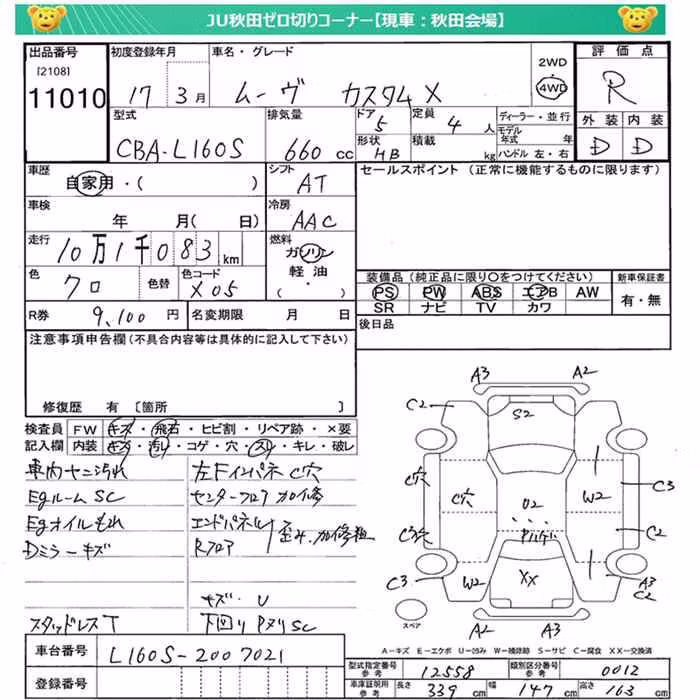 JU秋田ゼロ切りコーナー【現車：秋田会場】
出品番号
[2108]
11010
初度登録年月
17 3 月
車名・グレード
ムーヴ カスタムX
2WD
4WD
評価点
R
外装 内装
D D
型式
CBA-L160S
排気量
660 cc
ドア
5
定員
4 人
形状
HB
積載
kg
ディーラー・並行
モデル
年式 年
ハンドル 左・右
車歴
自家用・( )
シフト
AT
セールスポイント（正常に機能するものに限ります）
車検
年 月( 日)
冷房
AAC
走行
10万1千083 km
燃料
ガソリン
軽油
( )
色
クロ
色替
色コード
X05
装備品（純正品に限り〇をつけてください）
PS PW ABS エアB AW
SR ナビ TV カワ
新車保証書
有・無
R券
9,100 円
名変期限 月 日
後日品
注意事項申告欄(不具合内容等は具体的に記入して下さい)
修復歴 有〔箇所 〕
検査員 FW キズ・飛石・ヒビ割・リペア跡・×要
記入欄 内装 キズ・汚れ・コゲ・穴・スレ・キレ・破レ
車内ヤニ汚れ
Egルーム SC
Egオイルもれ
Dミラーキズ
スタッドレスT
左Fインパネ C穴
センターフロア 加修
エンドパネル
Rフロア
歪み・加修粗
キズ・U
下回り Pヌリ SC
A3 A2
C2 S2
C穴 C穴 W2 C3
U2
C3穴 C2
C3 W2 XX A3
C2
A2 A3
スペア
A－キズ E－エクボ U－凹み W－補修跡 S－サビ C－腐食 XX－交換済
車台番号
L160S-2007021
登録番号
型式指定番号
参考
12558
類別区分番号
参考
0012
車庫証明用
参考
長さ
339
幅
147
高さ
163
cm